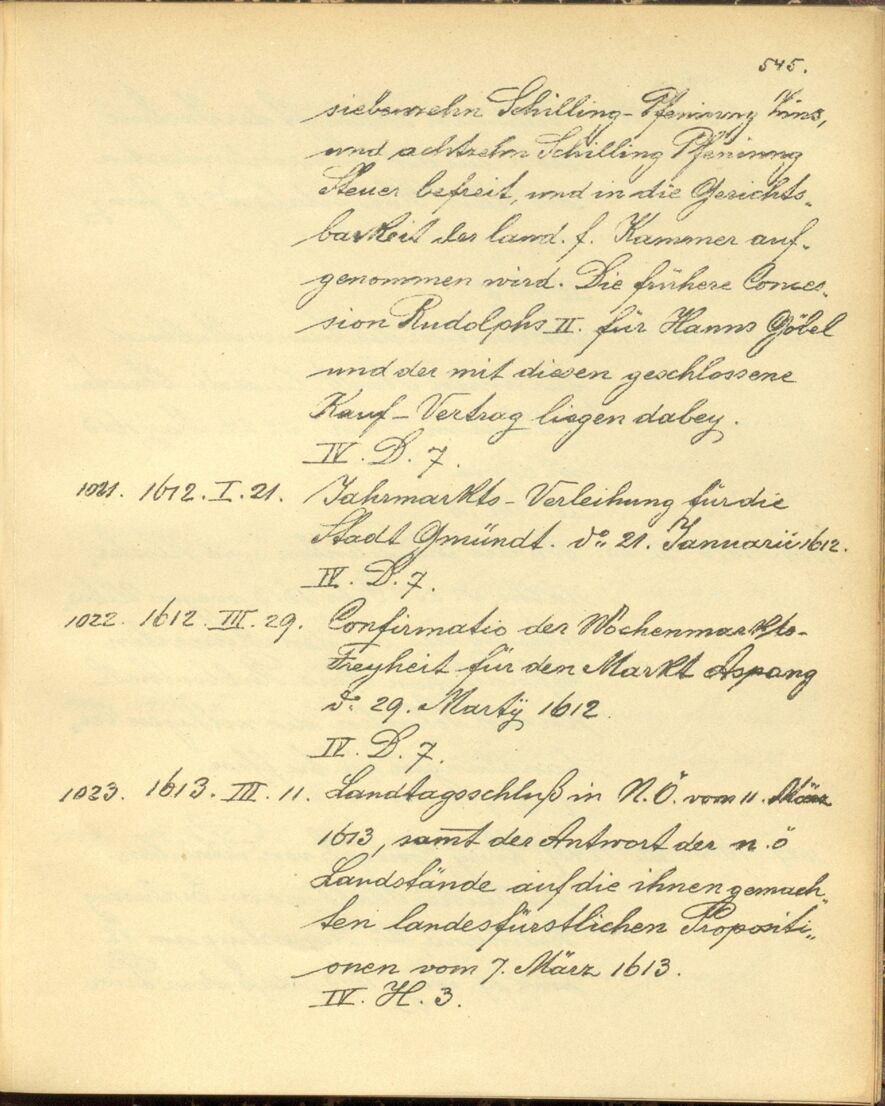 545.
siebenzehn Schilling-Pfenning Zins,
und achtzehn Schilling Pfenning
Steuer befreit, und in die Gerichts-
barkeit der land. f. Kammer auf-
genommen wird. Die frühere Conces-
sion Rudolphs II. für Hanns Göbel
und der mit diesen geschlossene
Kauf-Vertrag liegen dabey.
IV. D. 7.
1021. 1612. I. 21. Jahrmarkts-Verleihung für die
Stadt Gmündt. do 21. Januarii 1612.
IV. D. 7.
1022. 1612. III. 29. Confirmatio der Wochenmarkts-
Freyheit für den Markt Aspang
do 29. Martÿ 1612.
IV. D. 7.
1023. 1613. III. 11. Landtagsschluß in N.Ö. vom 11. März
1613, samt der Antwort der n.ö
Landstände auf die ihnen gemach-
ten landesfürstlichen Propositi-
onen vom 7. März 1613.
IV. H. 3.